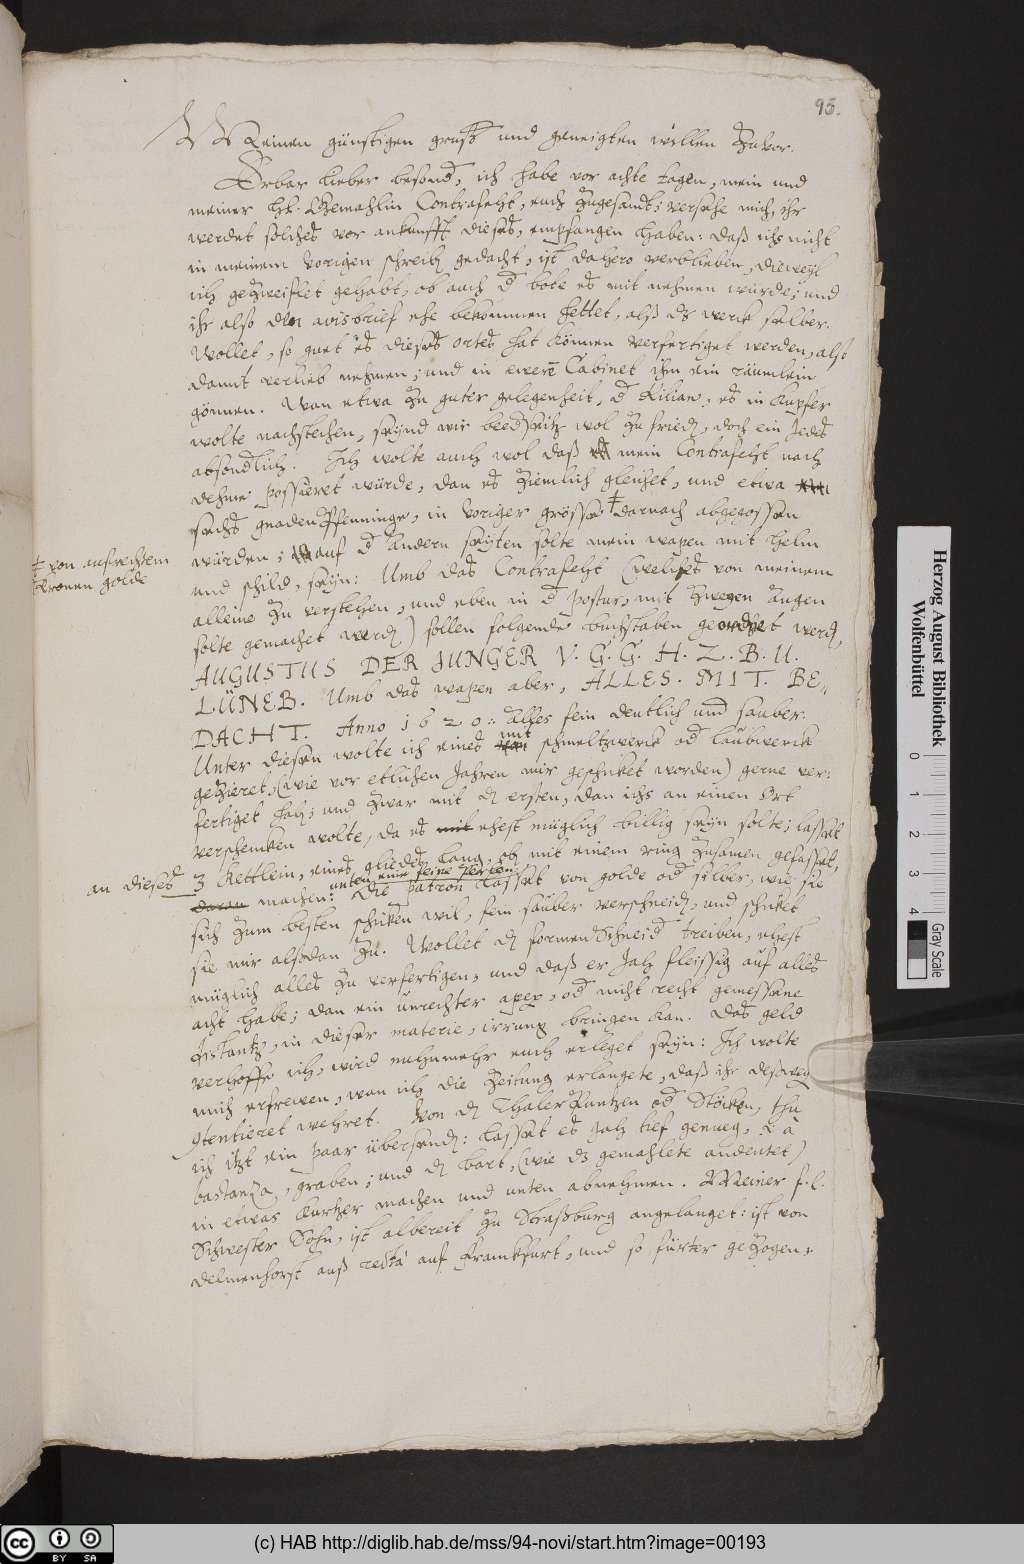 95.
Meinen günstigen gruß und geneigten willen Zuvor.
Erbar lieber besond., ich habe vor achte tagen, mein und
meiner hl. Gemahlin Contrafeht, euch Zugesandt; versehe mich, ihr
werdet solches vor ankunfft dieses, empfangen haben: daß ichs nicht
in meinem vorigen schreib. gedacht, ist dahero verblieben, dieweyl
ich geZweiflet gehabt, ob auch d. bote es mit nehmen würde; und
ihr also den avisbrief ehe bekommen hettet, alß ds werck selber.
Wollet, so guet es dieses ortes hat können verfertiget werden, also
damit verlieb nehmen; und in ewerem Cabinet ihm ein räumlein
gönnen. Wan etwa Zu guter gelegenheit, d. Kilian, es in Kupfer
wolte nachstechen, seynd wir beedseits wol Zu fried., doch ein Jedes
absondlich. Ich wolte auch wol daß mein Contrafeht nach
dehme possieret würde, dan es Ziemlich gleichet, und etwa
sechs gnadenpfenninge, in voriger grösse ‡ darnach abgegossen
‡ von aufrechtem
Kronen golde
würden; auf d. andern seyten solte mein wapen mit helm
und schild, seyn: Umb das Contrafeht (welches von meinem
alleine Zu verstehen, und eben in d. postur, mit Zweyen augen
solte gemachet werd.) sollen folgende buchstaben geordnet werd.,
AUGUSTUS DER JUNGER V. G. G. H. Z. B. U.
LÜNEB. Umb das wapen aber, ALLES. MIT. BE-
DACHT. Anno 1620: alles fein deutlich und sauber.
Unter diesen wolte ich eines mit schmeltzwerck od. laubwerck
geZieret, (wie vor etlichen Jahren mir geschicket worden) gerne ver-
fertiget hab.; und Zwar mit d. ersten, dan ichs an einen Ort
verschencken wolte, da es ehest müglich billig seyn solte; lasset
an dieses 3 Kettlein, eines gliedes lang, ob. mit einem ring Zusamen gefasset,
unten eine feine perlen:
daran machen: Die patron lasset von golde od. silber, wie sie
sich Zum besten schicken wil, fein sauber verschneid., und schicket
sie mir alsodan Zu. Wollet d. formenschneid. treiben, ehest
müglich alles Zu verfertigen, und daß er Jah fleissig auf alles
acht habe; dan ein unrechter apex, od. nicht recht gemessene
distantz, in dieser materie, irrung bringen kan. Das geld
verhoffe ich, wird nuhnmehr euch erleget seyn: Ich wolte
mich erfrewen, wan ich die Zeitung erlangete, daß ihr deßweg.
contentieret wehret. Von d. Thaler od. Stöcken, thu
ich itzt ein paar übersend.: lasset es Jah tief genueg, à
bastanza, graben; und d. bart, (wie ds gemahlete andeutet)
in etwas kurtzer machen und unten abnehmen. Meiner f. l.
Schwester Sohn, ist albereit Zu Straßburg angelanget: ist von
Delmenhorst auß rectà auf Franckfurt, und so fürter geZogen,
Herzog August Bibliothek
Wolfenbüttel
0 1 2 3 4
Gray Scale
cc BY SA
(c) HAB http://diglib.hab.de/mss/94-novi/start.htm?image=00193